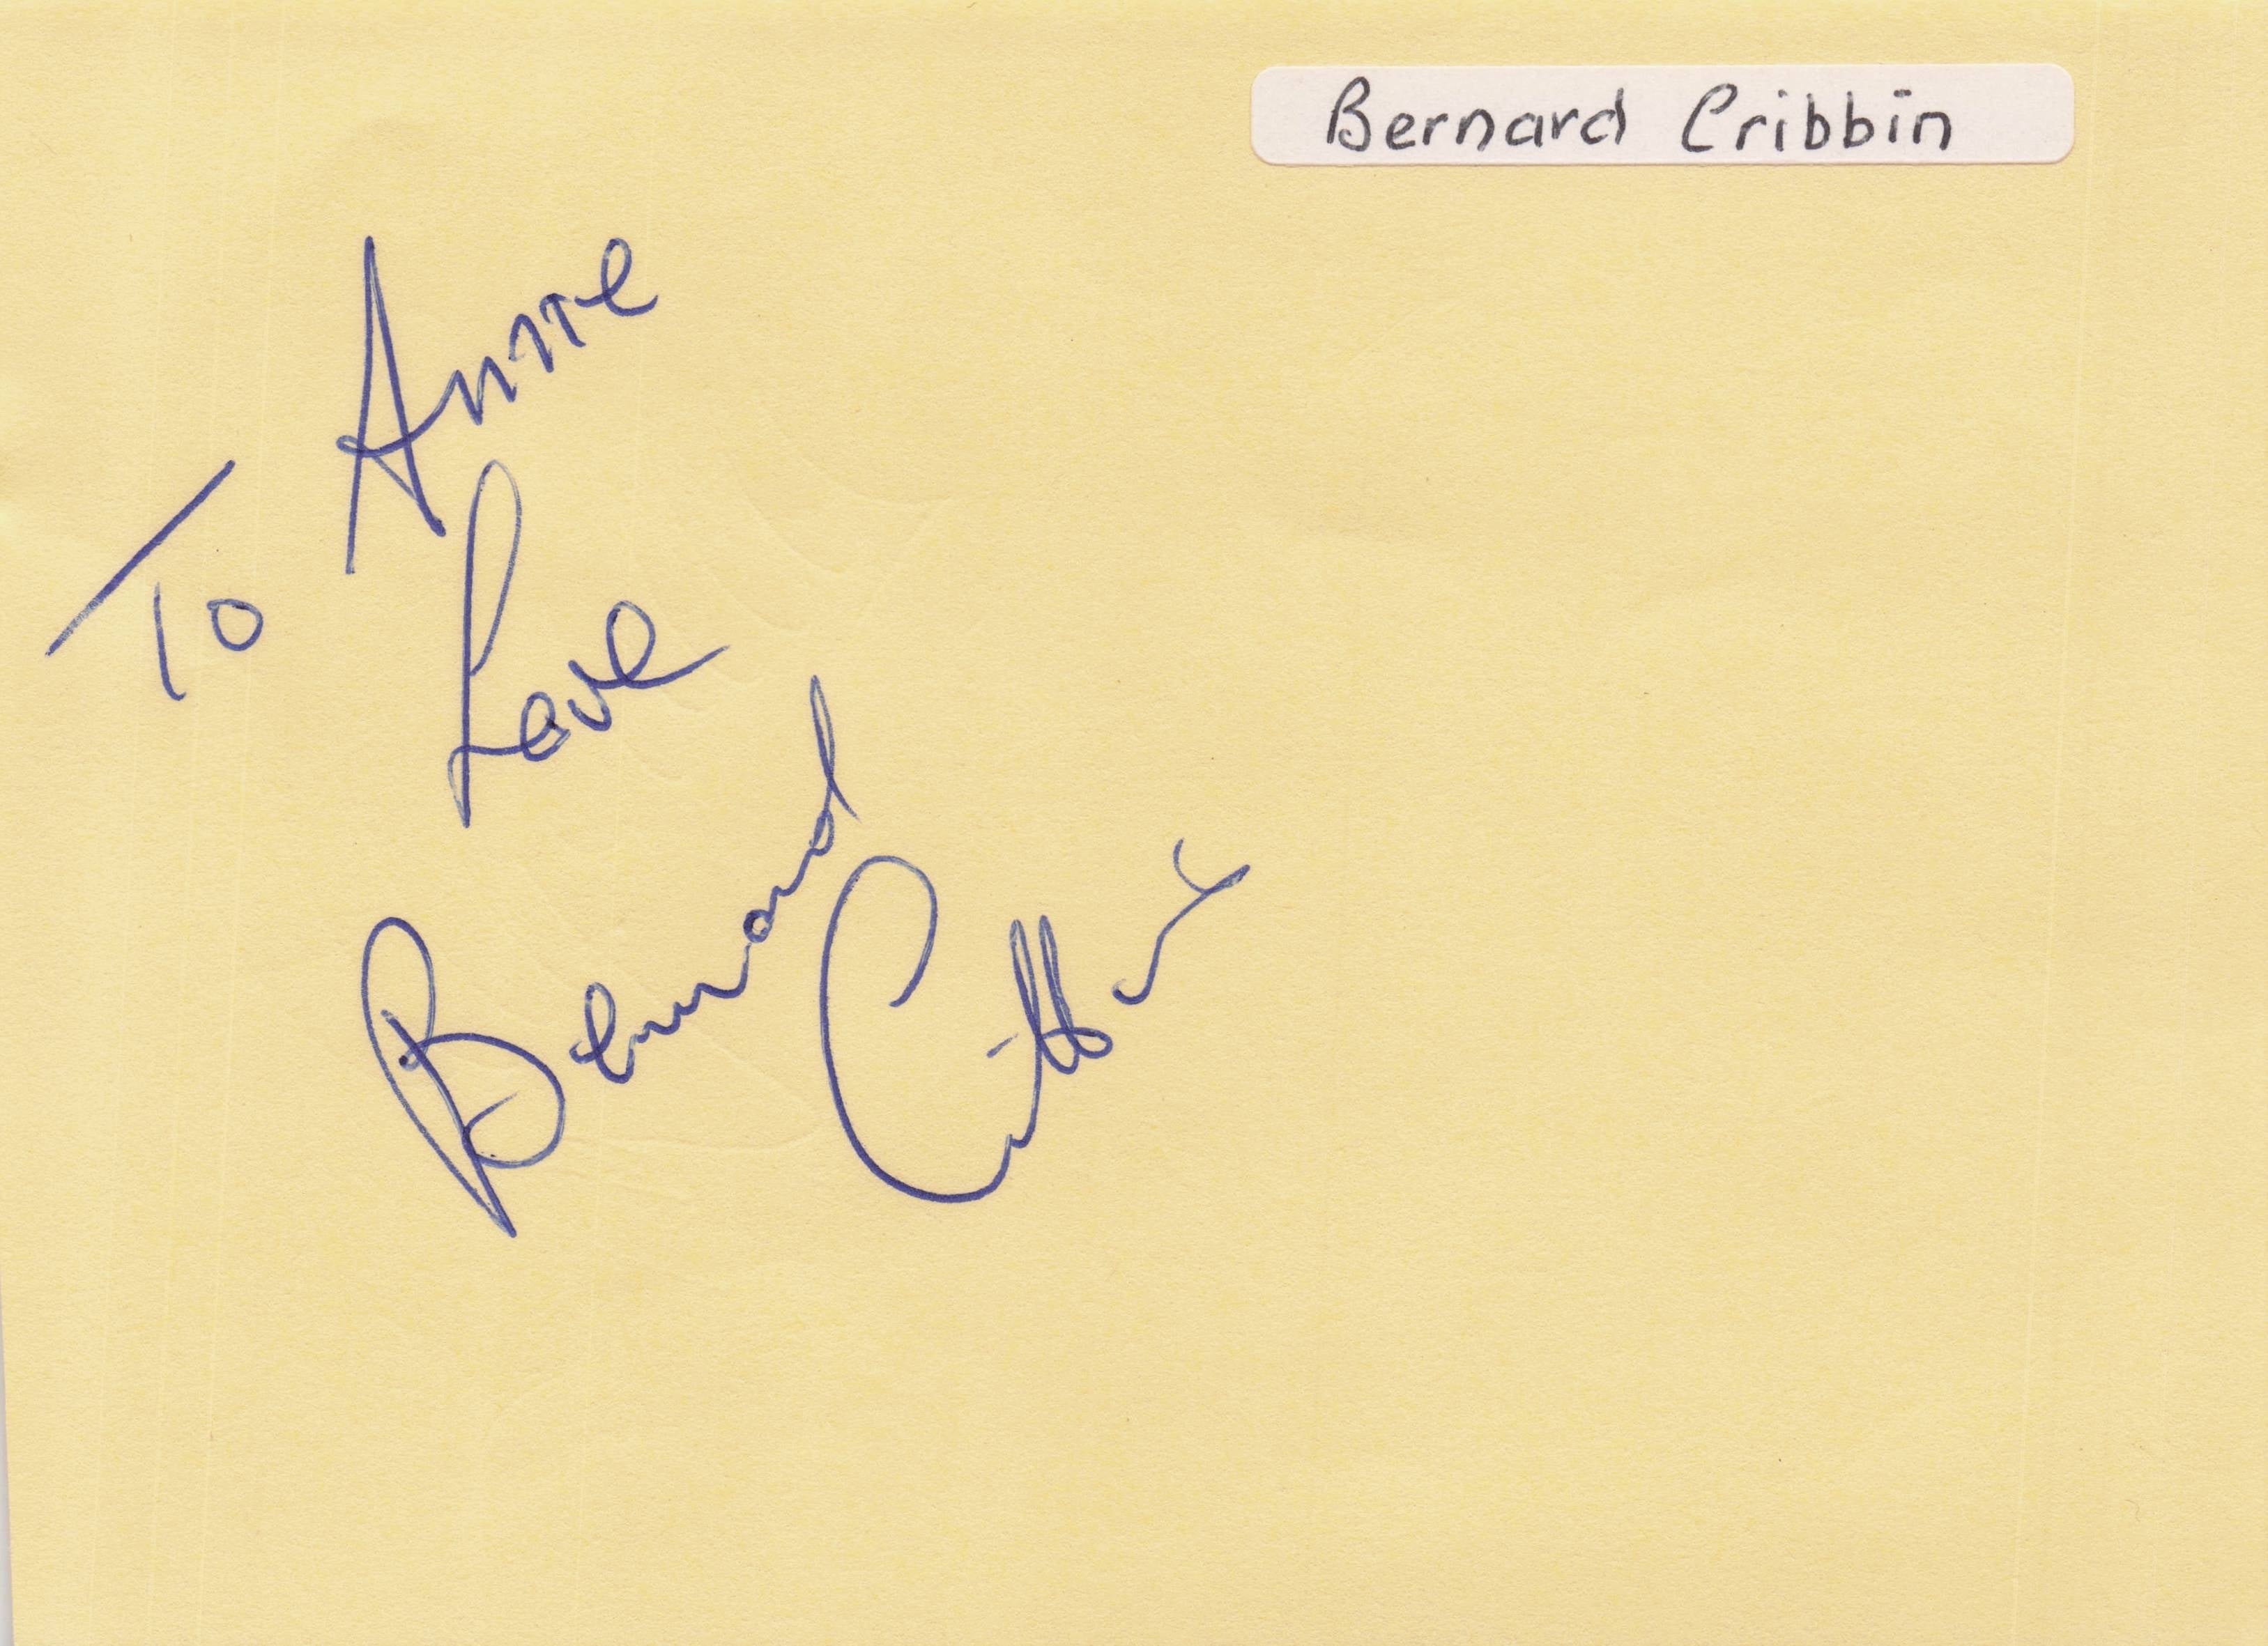 Bernard Cribbin
To Annie
Love
Bernard Cribbins